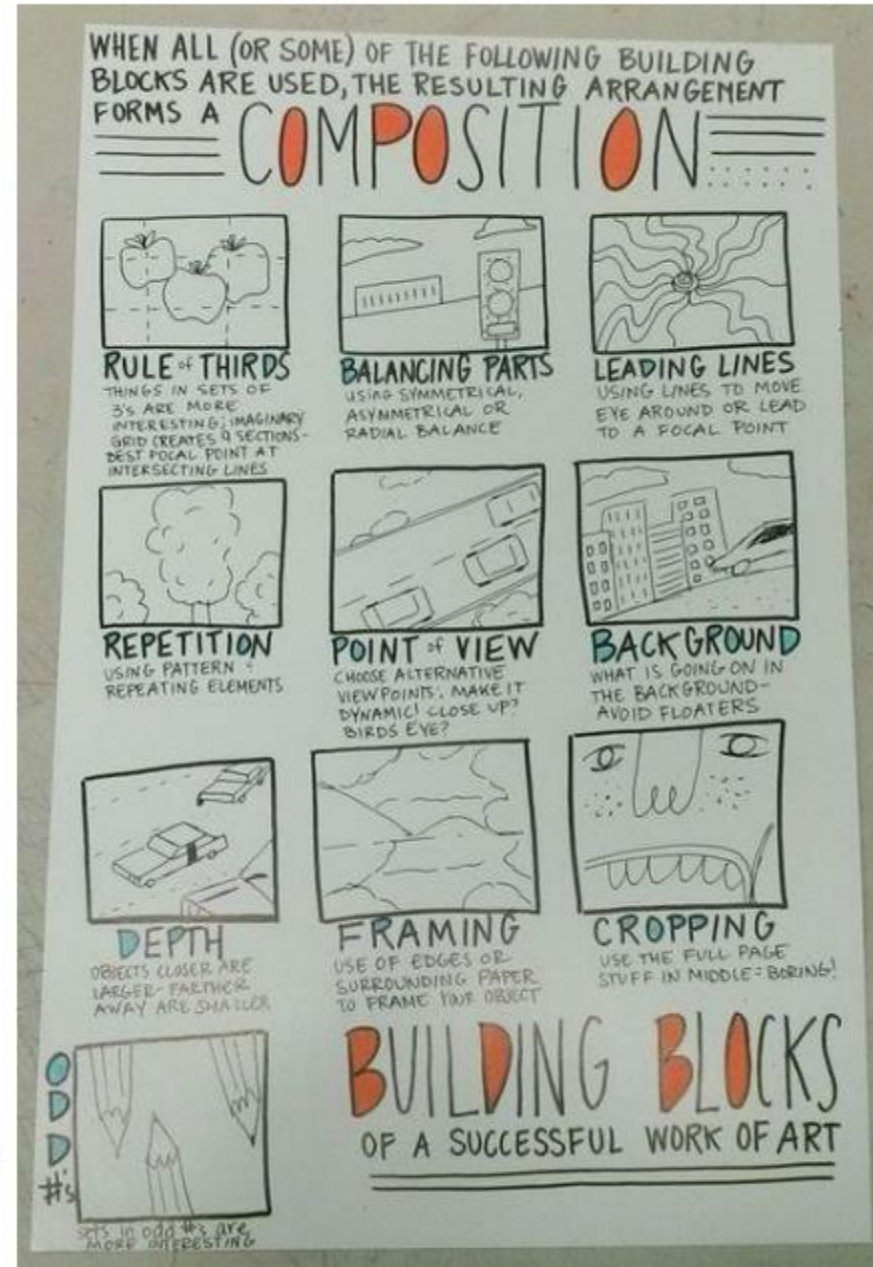 WHEN ALL (OR SOME) OF THE FOLLOWING BUILDING
BLOCKS ARE USED, THE RESULTING ARRANGEMENT
FORMS A
COMPOSITION
RULE of THIRDS
THINGS IN SETS OF
3'S ARE MORE
INTERESTING; IMAGINARY
GRID CREATES 9 SECTIONS-
BEST FOCAL POINT AT
INTERSECTING LINES
BALANCING PARTS
USING SYMMETRICAL,
ASYMMETRICAL OR
RADIAL BALANCE
LEADING LINES
USING LINES TO MOVE
EYE AROUND OR LEAD
TO A FOCAL POINT
REPETITION
USING PATTERN +
REPEATING ELEMENTS
POINT of VIEW
CHOOSE ALTERNATIVE
VIEWPOINTS. MAKE IT
DYNAMIC! CLOSE UP?
BIRDS EYE?
BACKGROUND
WHAT IS GOING ON IN
THE BACKGROUND-
AVOID FLOATERS
DEPTH
OBJECTS CLOSER ARE
LARGER- FARTHER
AWAY ARE SMALLER
FRAMING
USE OF EDGES OR
SURROUNDING PAPER
TO FRAME YOUR OBJECT
CROPPING
USE THE FULL PAGE
STUFF IN MIDDLE = BORING!
ODD
#'s
sets in odd #'s are
MORE INTERESTING
BUILDING BLOCKS
OF A SUCCESSFUL WORK OF ART